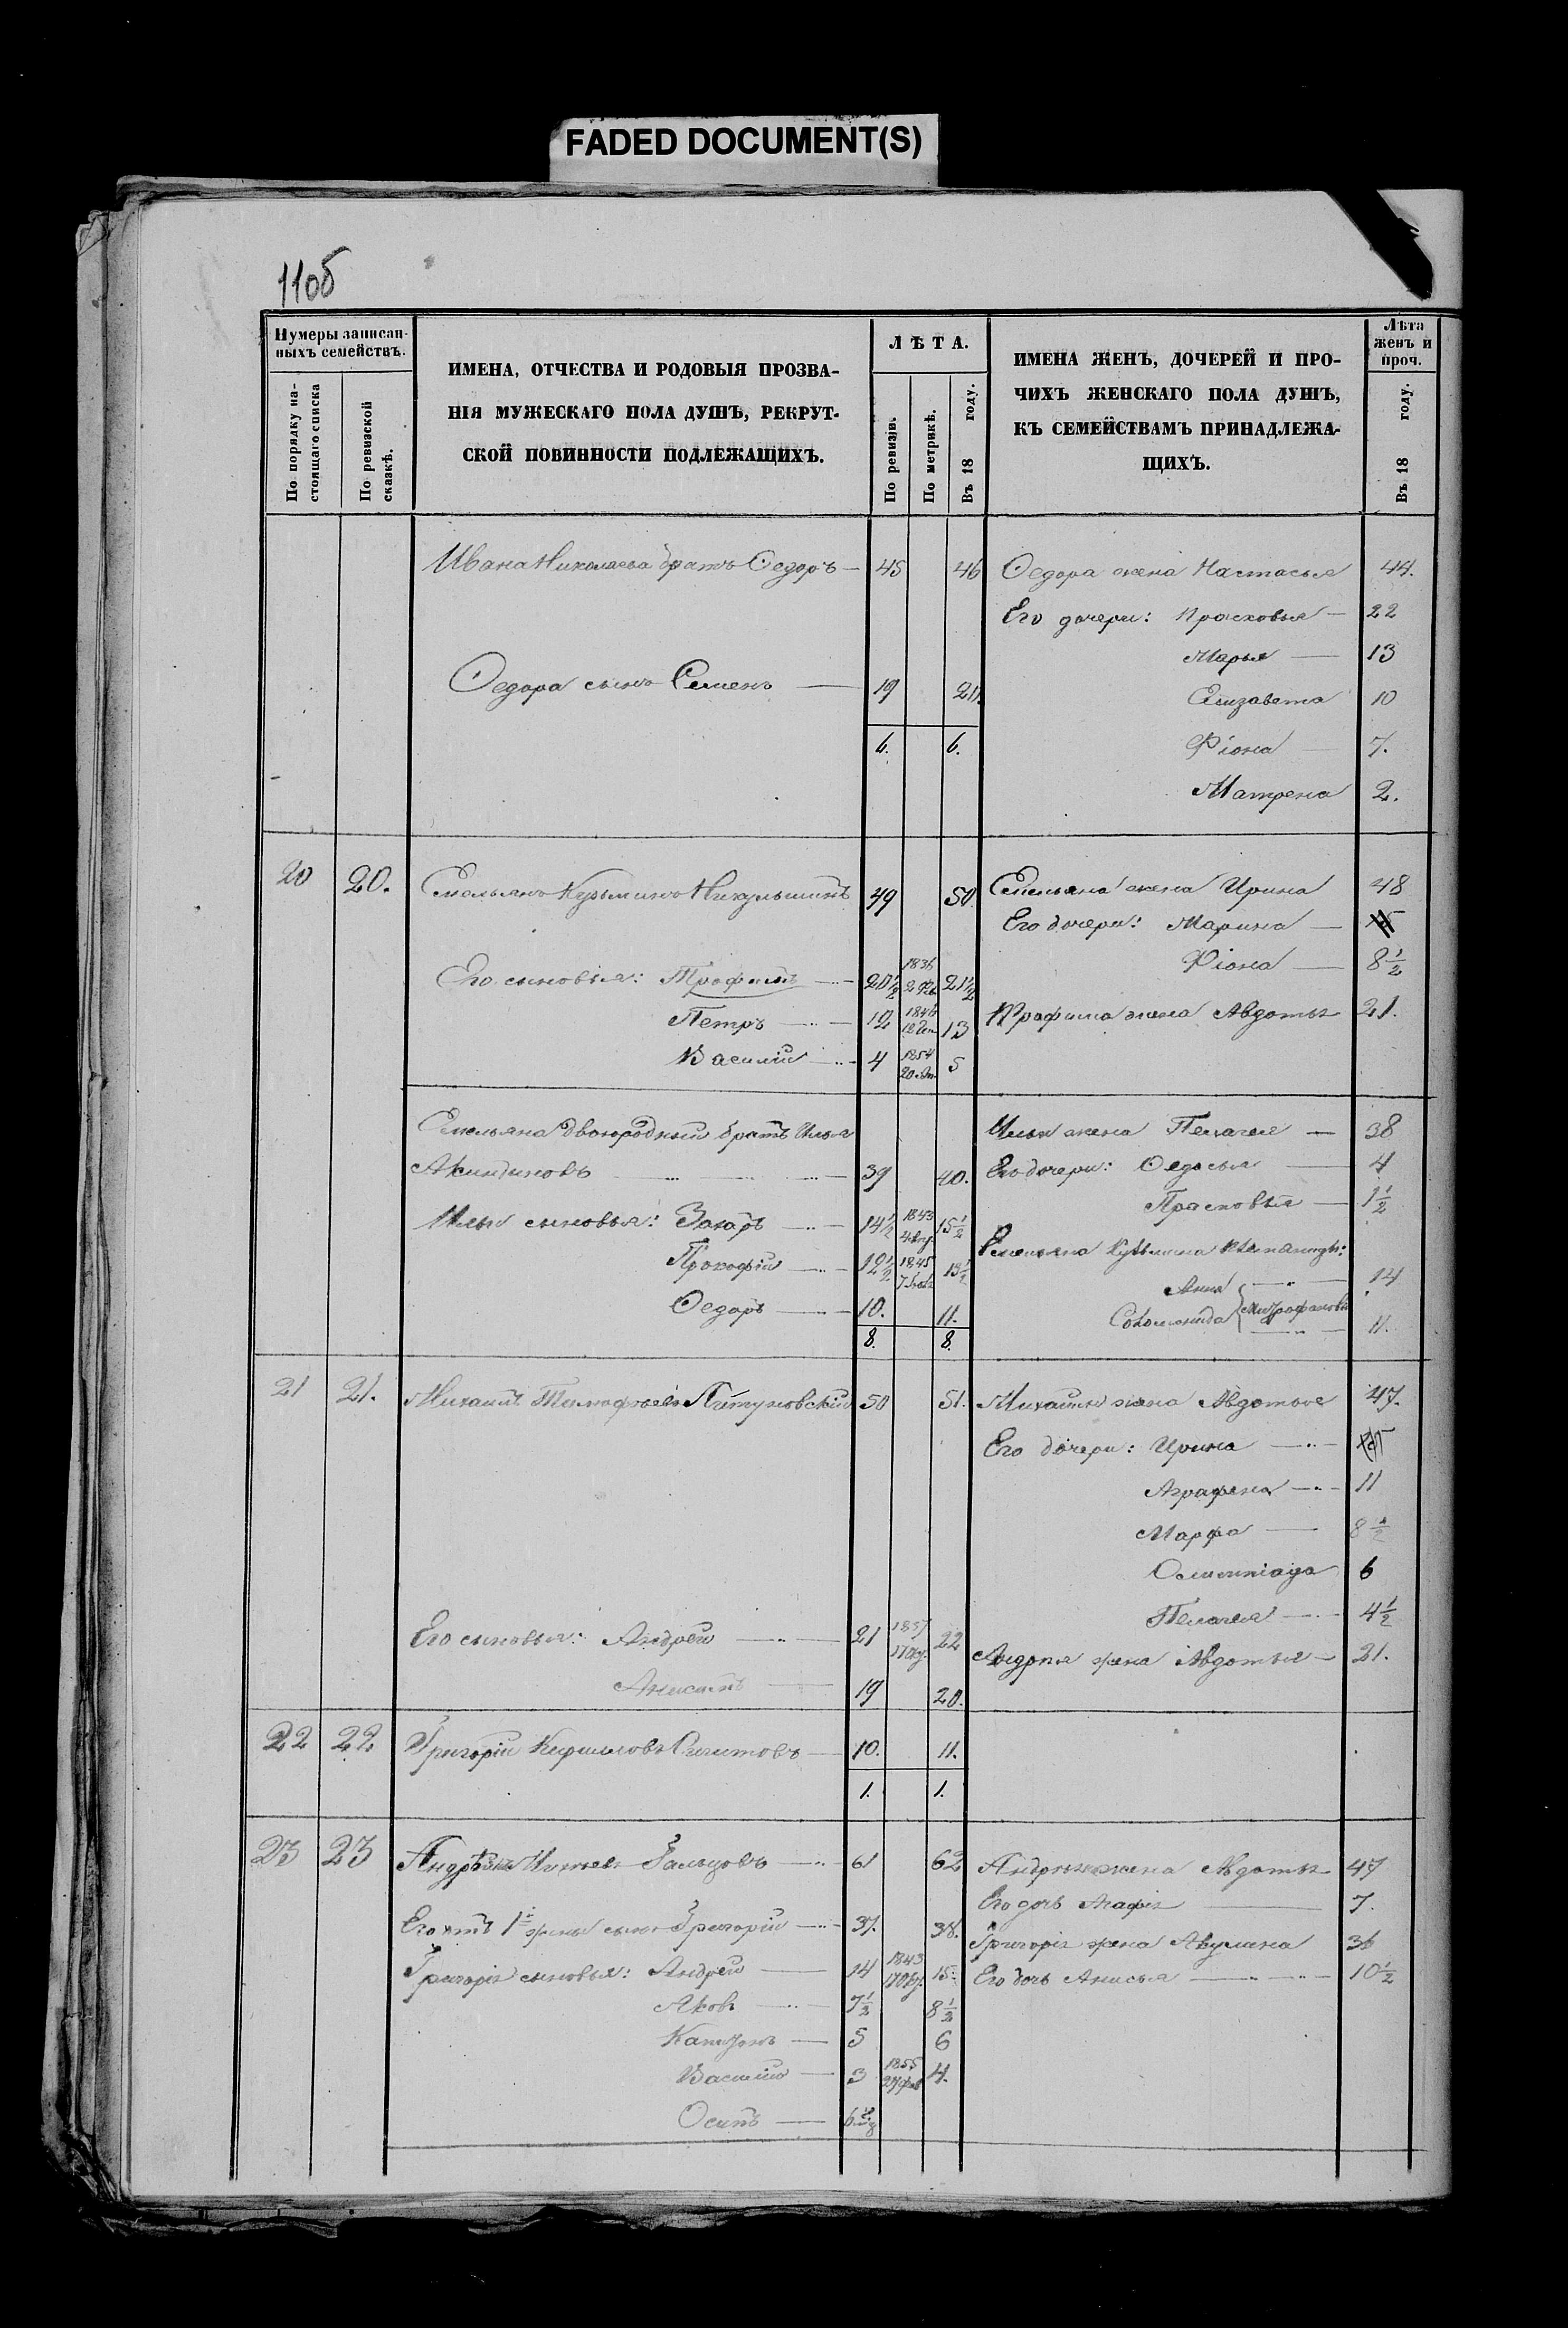 FADED DOCUMENT(S)
1105
Нумеры записан-
ныхъ семействъ.
По порядку на-
стоящаго списка
По ревизской
сказкѣ.
ИМЕНА, ОТЧЕСТВА И РОДОВЫЯ ПРОЗВА-
НІЯ МУЖЕСКАГО ПОЛА ДУШЪ, РЕКРУТ-
СКОЙ ПОВИННОСТИ ПОДЛЕЖАЩИХЪ.
ЛѢТА.
По ревизіи.
По метрикѣ.
Въ 18 году.
ИМЕНА ЖЕНЪ, ДОЧЕРЕЙ И ПРО-
ЧИХЪ ЖЕНСКАГО ПОЛА ДУШЪ,
КЪ СЕМЕЙСТВАМЪ ПРИНАДЛЕЖА-
ЩИХЪ.
Лѣта
женъ и
проч.
Въ 18 году.
Ивана Николаева братъ Ѳедоръ — 45 46 Ѳедора жена Настасья 44.
Его дочери: Просковья — 22
Марья — 13
Ѳедора сынъ Семенъ — 19 Елизавета 10
6. 6. Фіона — 7.
Матрена 2.
20 20. Емельянъ Кузьминъ Никульшинъ 49 50 Емельяна жена Ирина 48
Его дочери: Марина —
Фіона — 8½
Его сыновья: Трофимъ — 20½ 1836 21½
Трофима жена Авдотья 21.
Петръ — 12 1846 13
Василій — 4 1854 5
Емельяна двоюродный братъ Илья Ильи жена Пелагея — 38
Акиндиновъ — 39 40. Его дочери: Ѳедосья — 4
Прасковья — 1½
Ильи сыновья: Захаръ — 14½ 1843 15½
Емельяна Кузьмина
Прокофій — 12½ 1845 13½
Анна — 14
Ѳедоръ — 10. 11. Митрофановы 11.
8. 8.
21 21. Михаилъ Тимофѣевъ 50 51. Михайлы жена Авдотья 47.
Его дочери: Ирина —
Аграфена — 11
Марфа — 8½
Олимпіада 6
Пелагея — 4½
Его сыновья: Андрей — 21 22
Андрея жена Авдотья — 21.
19 20.
22 22 Григорій Кириловъ 10. 11.
1. 1.
23 23 61 62 Андрея жена Авдотья 47
Его дочь Агафія — 7.
Его отъ 1й жены сынъ Григорій — 37. 38.
Григорія жена Акулина 36
Григорія сыновья: Андрей — 14 1843 15. Его дочь Анисья — 10½
Яковъ — 7½ 8½
5 6
Василій — 3 1855 4.
Осипъ —